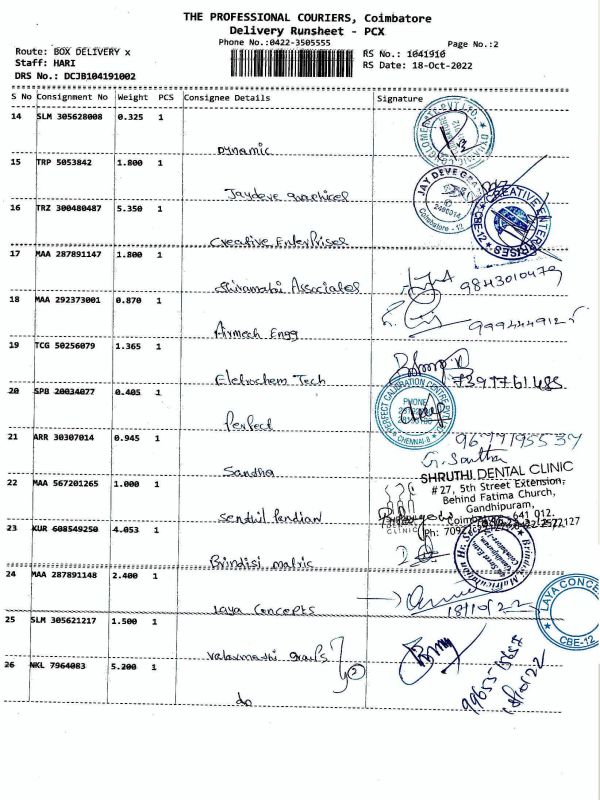 THE PROFESSIONAL COURIERS, Coimbatore
Delivery Runsheet - PCX
Phone No.:0422-3505555
Page No.:2
Route: BOX DELIVERY x
RS No.: 1041910
Staff: HARI
RS Date: 18-Oct-2022
DRS No.: DCJB104191002
S No Consignment No Weight PCS Consignee Details Signature
14 SLM 305628008 0.325 1
Dynamic
15 TRP 5053842 1.800 1
JAY DEVE
Coimbatore - 12
16 TRZ 300480487 5.350 1
Creative Enterprises
CREATIVE ENTERPRISES
CBE-12
17 MAA 287891147 1.800 1
Associates
9843010479
18 MAA 292373001 0.870 1
Airmech Engg
19 TCG 50256079 1.365 1
Eletrochem Tech
7397761485
20 SPB 20034077 0.405 1
Perfect
PERFECT CALIBRATION CENTRE
PHONE
CHENNAI-8
21 ARR 30307014 0.945 1
Sandha
SHRUTHI DENTAL CLINIC
# 27, 5th Street Extension,
Behind Fatima Church,
Gandhipuram,
Coimbatore - 641 012.
22 MAA 567201265 1.000 1
Senthil Pandian
23 KUR 608549250 4.053 1
Brindisi matric
24 MAA 287891148 2.400 1
Laya Concepts
18/10/22
LAYA CONCE
CBE-12
25 SLM 305621217 1.500 1
2
26 NKL 7964083 5.200 1
do